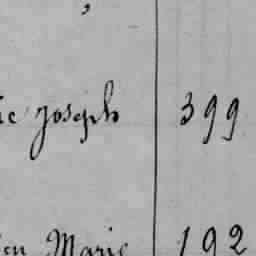 Joseph 399
Marie 192